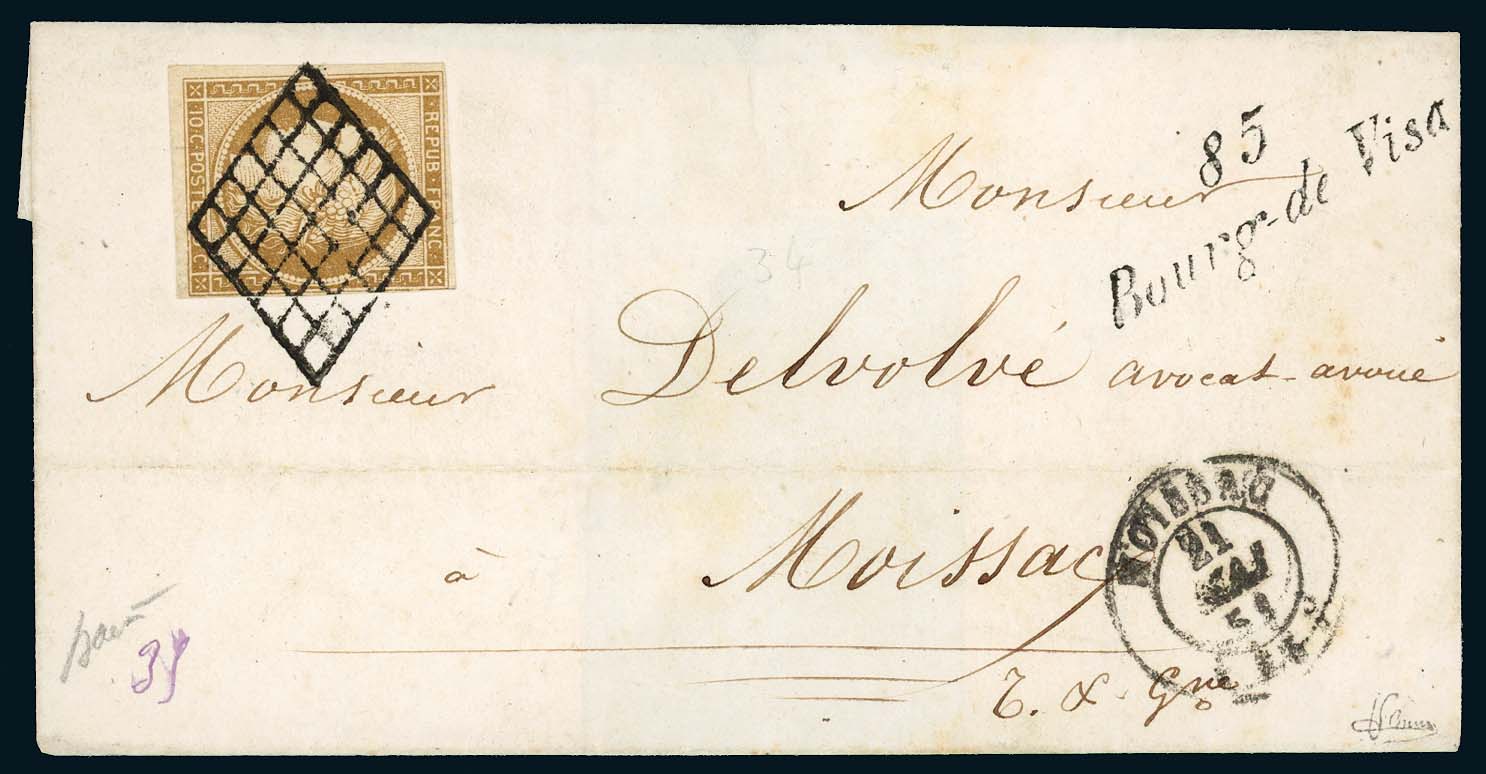 REPUB. FRANC.
10·C·POST
C
85
Bourg-de Visa
Monsieur
34
Monsieur Delvolvé avocat-avoué
à Moissac
21
MAI
51
T. & Gne
35